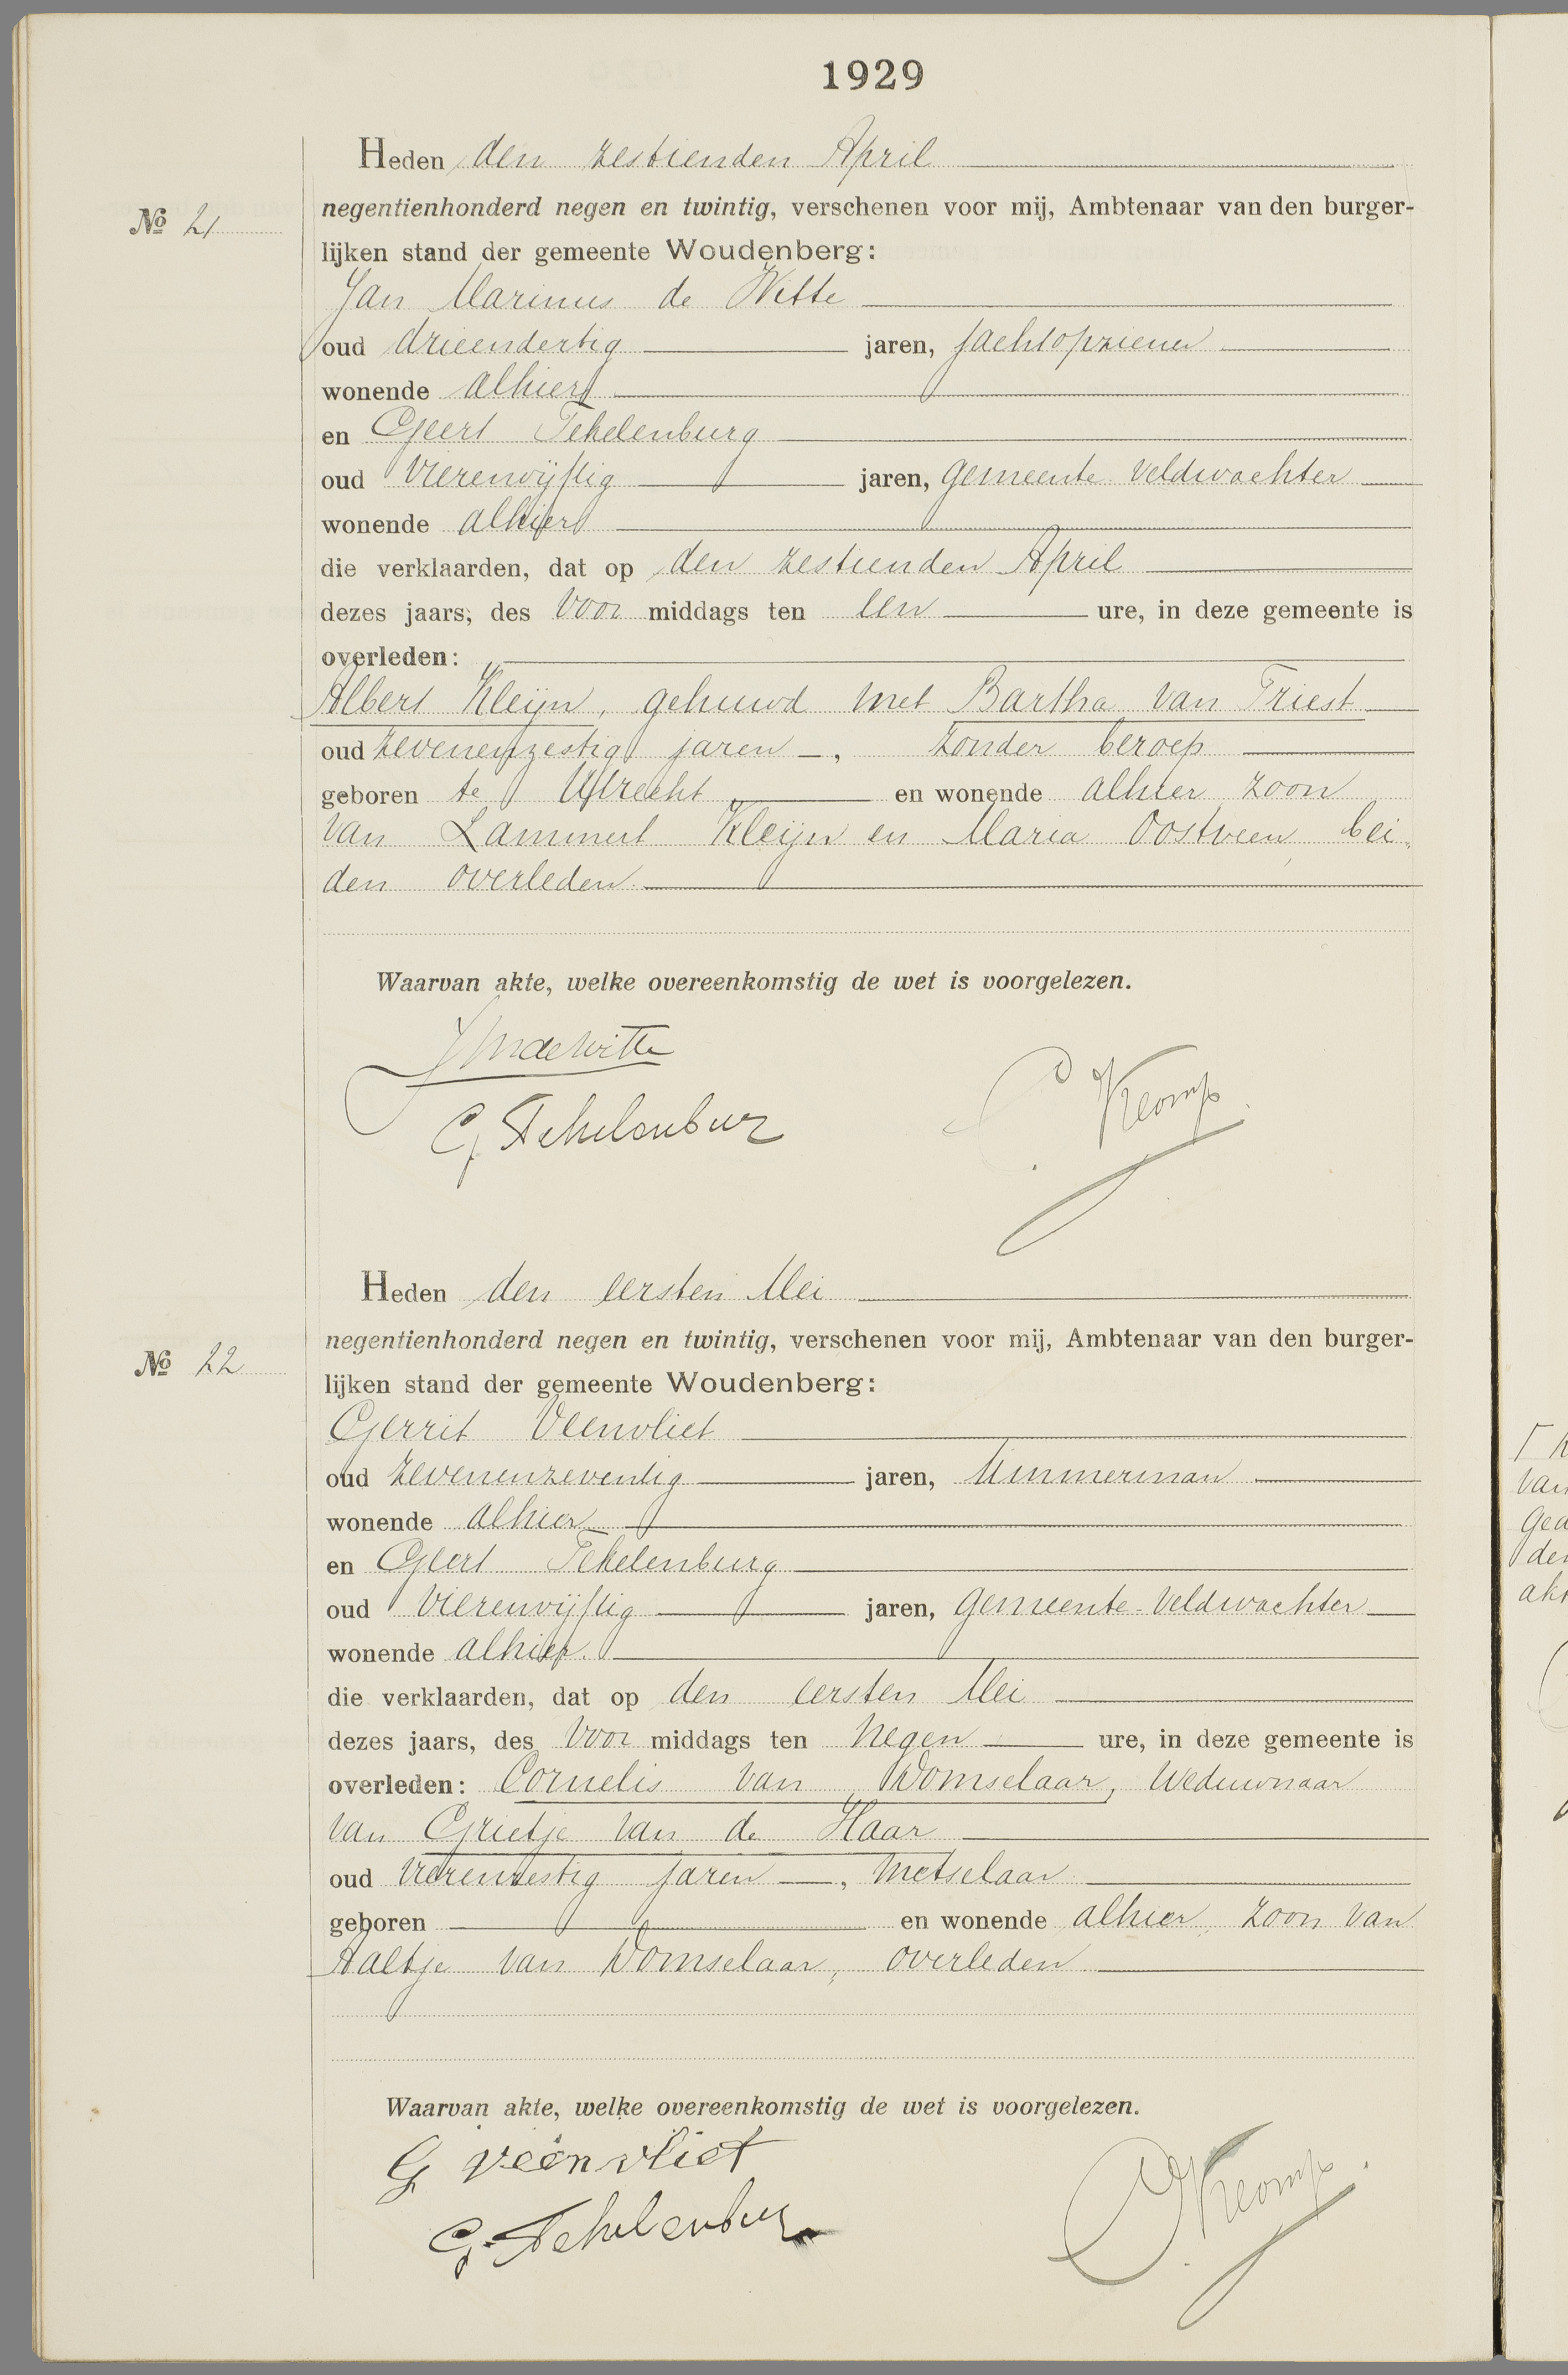 1929
Heden den zestienden April
No 21
negentienhonderd negen en twintig, verschenen voor mij, Ambtenaar van den burger-
lijken stand der gemeente Woudenberg:
Jan Marinus de Witte
oud drieendertig jaren, jachtopziener
wonende alhier
en Geert Tekelenburg
oud vierenvijftig jaren, gemeente veldwachter
wonende alhier
die verklaarden, dat op den zestienden April
dezes jaars, des voor middags ten een ure, in deze gemeente is
overleden:
Albert Kleijn, gehuwd met Bartha van Triest
oud zevenenzestig jaren, zonder beroep
geboren te Utrecht en wonende alhier zoon
van Lammert Kleijn en Maria Oostveen, bei-
den overleden.
Waarvan akte, welke overeenkomstig de wet is voorgelezen.
JMdeWitte
G Tekelenburg
Heden den eersten Mei
No 22
negentienhonderd negen en twintig, verschenen voor mij, Ambtenaar van den burger-
lijken stand der gemeente Woudenberg:
Gerrit Veenvliet
oud zevenenzeventig jaren, timmerman
wonende alhier
en Geert Tekelenburg
oud vierenvijftig jaren, gemeente-veldwachter
wonende alhier.
die verklaarden, dat op den eersten Mei
dezes jaars, des voor middags ten negen ure, in deze gemeente is
overleden: Cornelis van Domselaar, weduwnaar
van Grietje van de Haar
oud vierenzestig jaren, metselaar
geboren en wonende alhier, zoon van
Aaltje van Domselaar, overleden
Waarvan akte, welke overeenkomstig de wet is voorgelezen.
G veenvliet
G. Tekelenburg